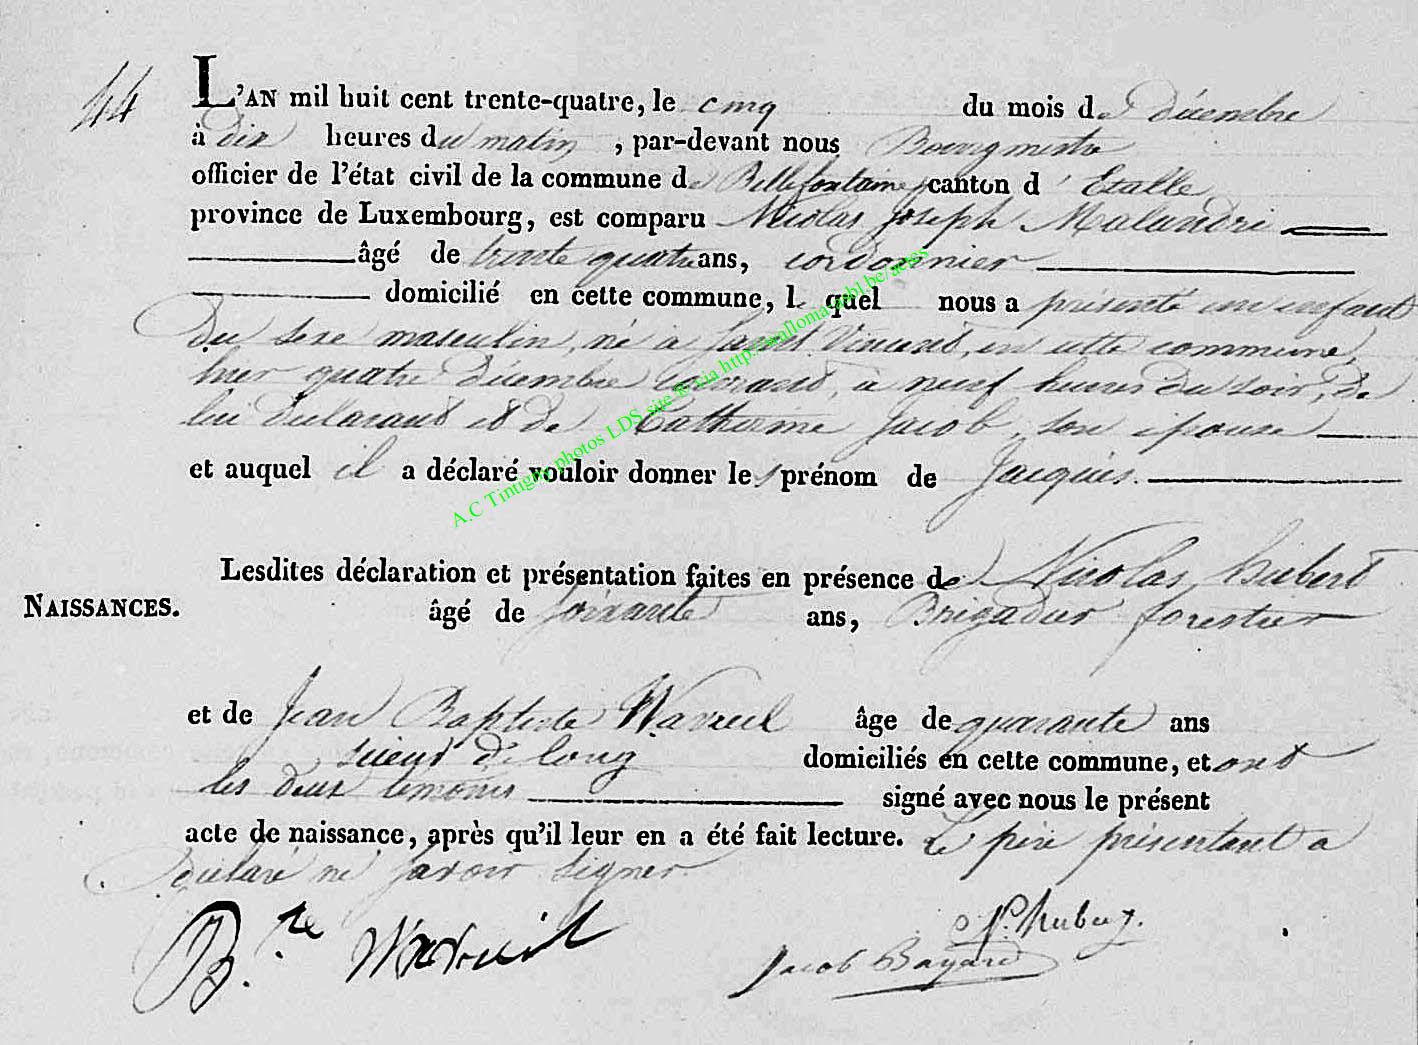 44
L'AN mil huit cent trente-quatre, le cinq du mois de décembre
à dix heures du matin, par-devant nous Bourgmestre
officier de l'état civil de la commune de Bellefontaine, canton d'Etalle
province de Luxembourg, est comparu Nicolas Joseph Malandri
âgé de trente quatre ans, cordonnier
domicilié en cette commune, lequel nous a présenté un enfant
du sexe masculin, né à Saint Vincent, en cette commune,
hier quatre décembre courant, à neuf heures du soir, de
lui déclarant et de Catherine Jacob, son épouse
et auquel il a déclaré vouloir donner les prénom de Jacques.
A.C Tintigny photos LDS site © via http://wallonia-asbl.be/actes
Lesdites déclaration et présentation faites en présence de Nicolas Hubert
NAISSANCES.
âgé de soixante ans, Brigadier forestier
et de Jean Baptiste Wavreil âge de quarante ans
scieur de long domiciliés en cette commune, et ont
les deux témoins signé avec nous le présent
acte de naissance, après qu'il leur en a été fait lecture. Le père présentant a
déclaré ne savoir signer.
B.te Wavreil
N. hubert.
Jacob Bayard